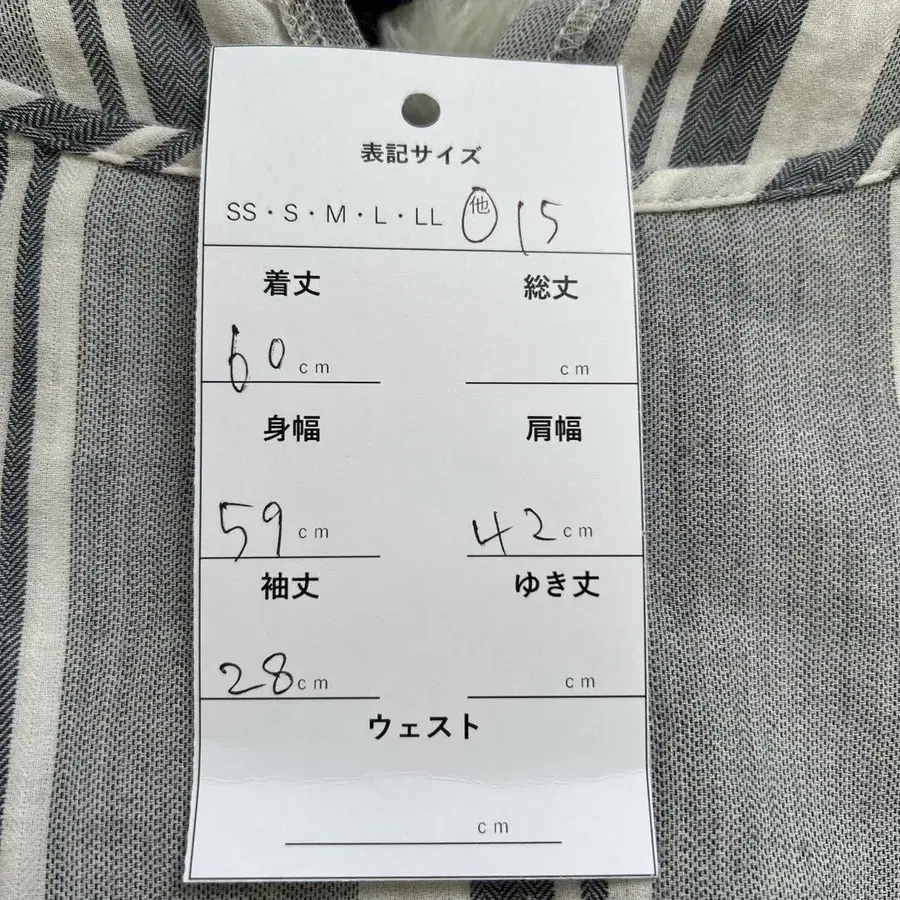 表記サイズ
SS・S・M・L・LL 他 15
着丈 総丈
60 cm cm
身幅 肩幅
59 cm 42 cm
袖丈 ゆき丈
28 cm cm
ウェスト
cm